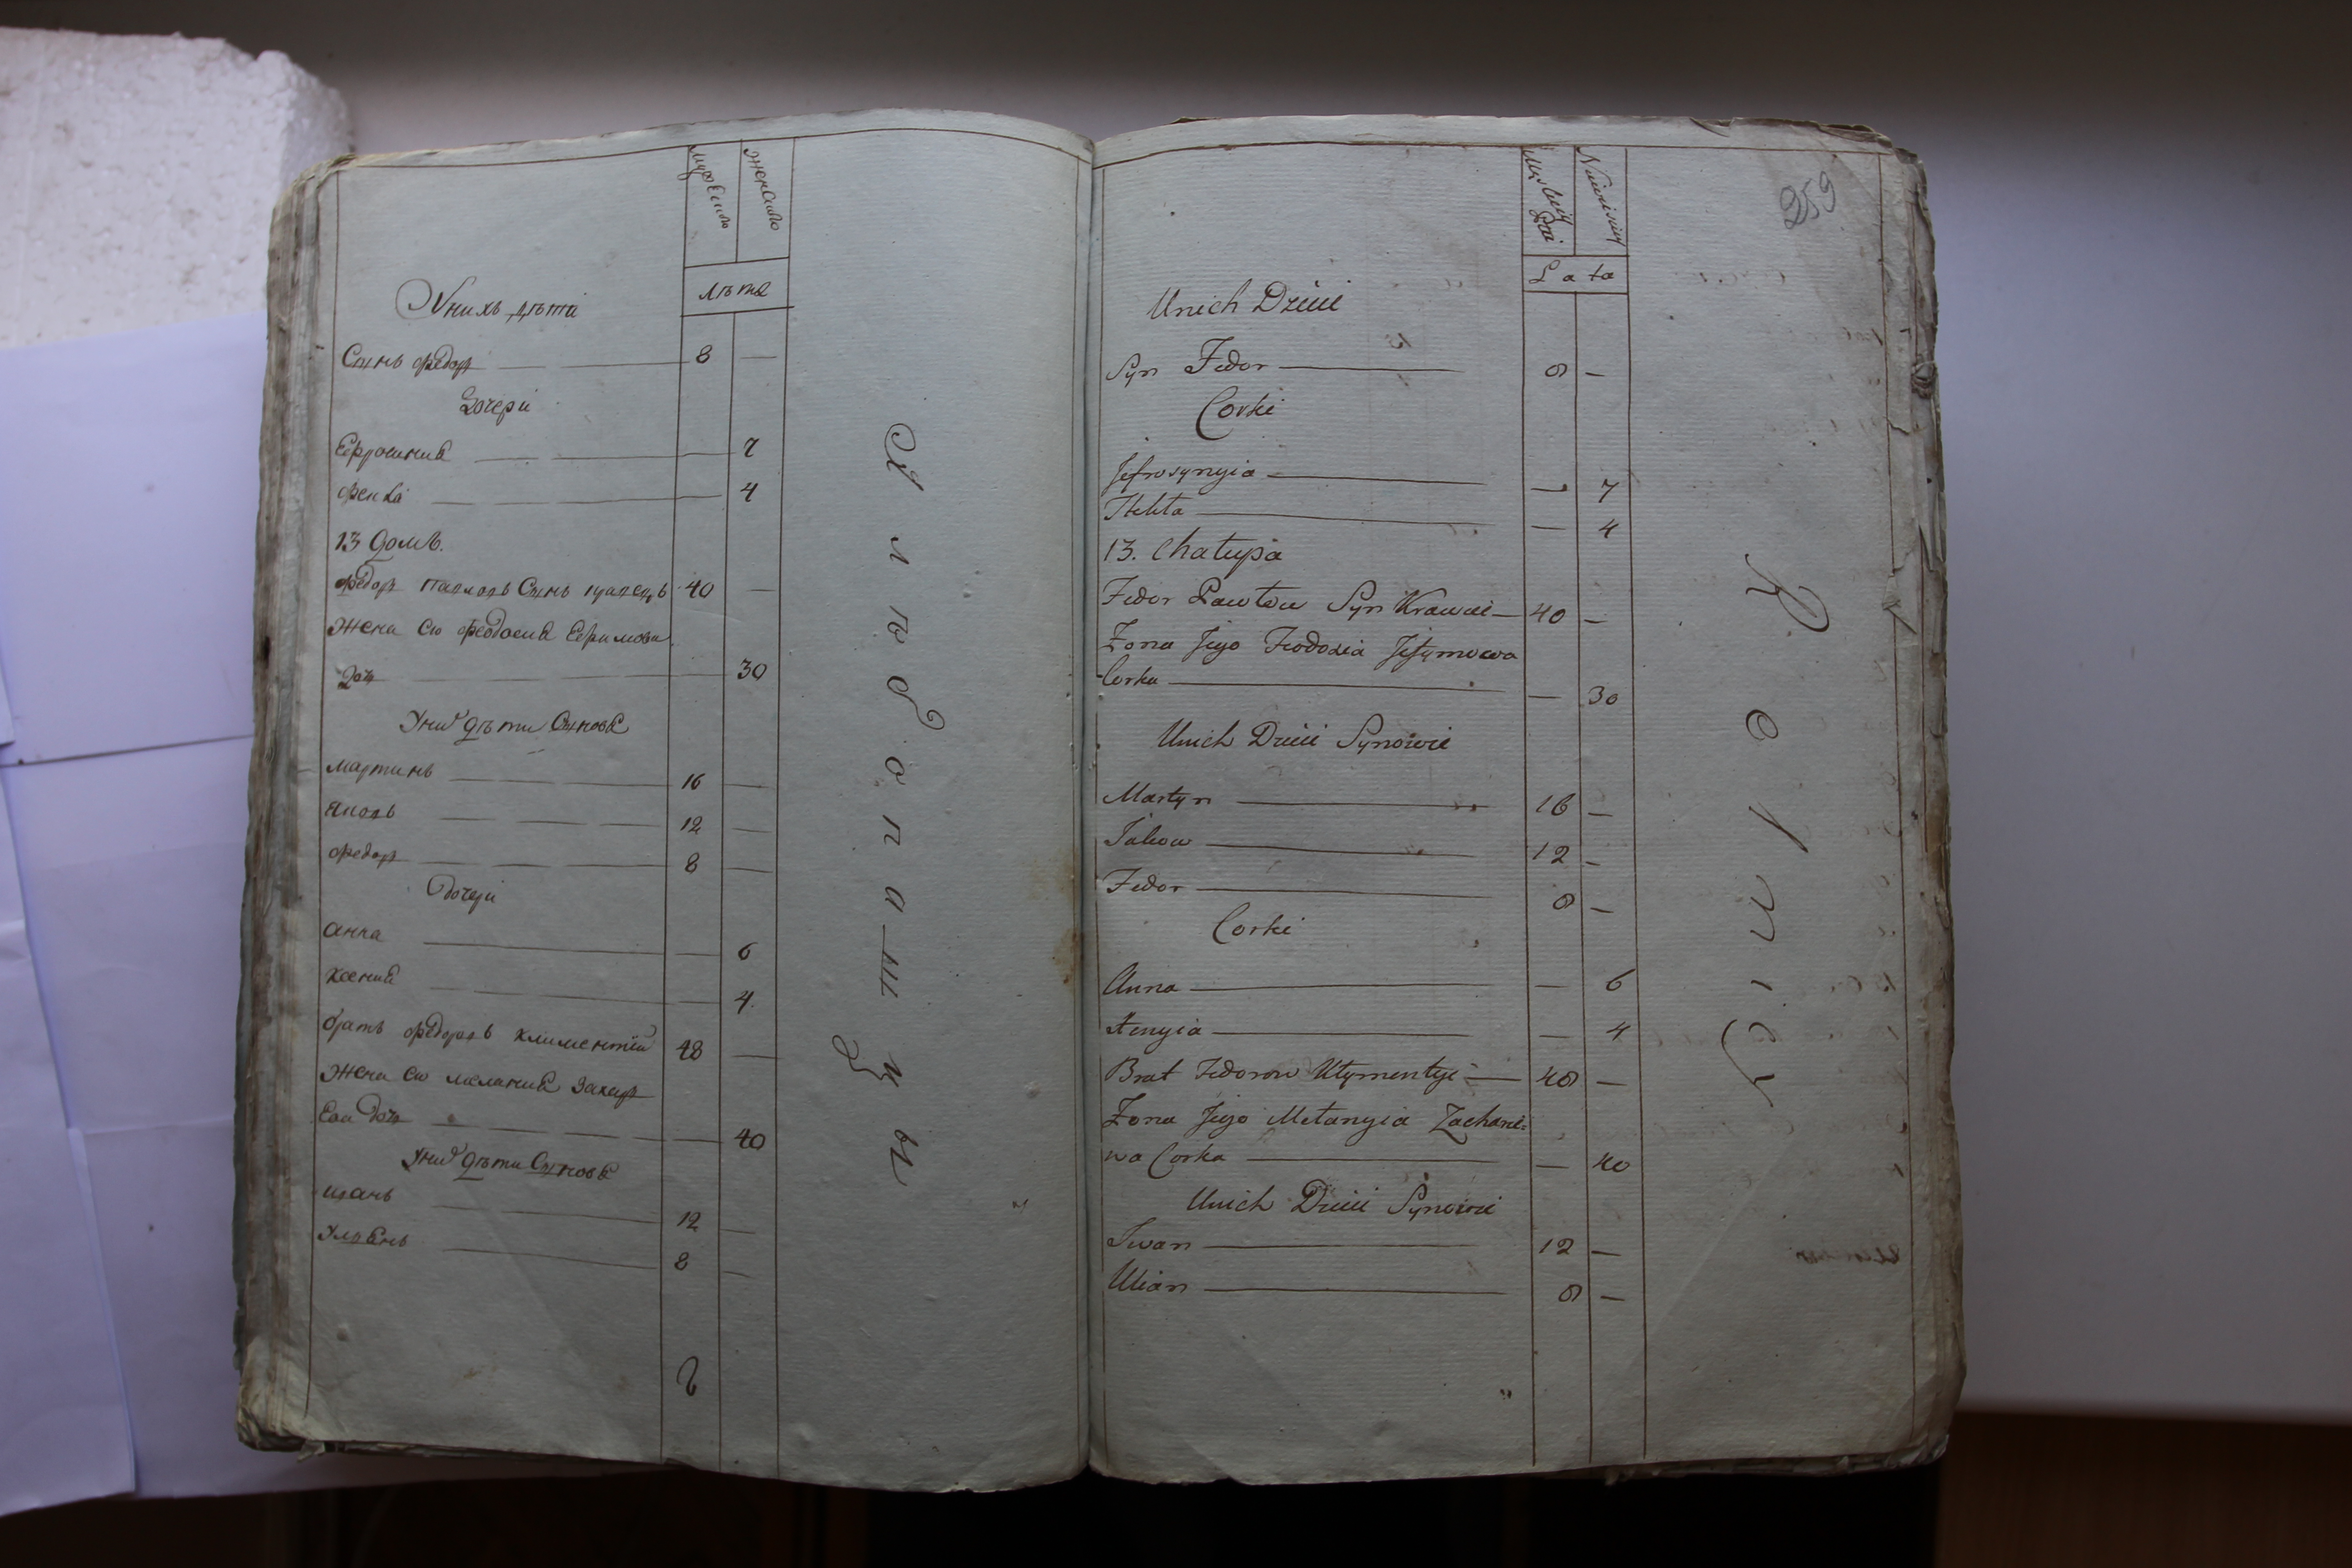 мужеска
женска
лѣта
У нихъ дѣти
Сынъ Федоръ 8 —
Дочери
Ефросиния 7
Фекла 4
13 домъ.
Федоръ Павловъ Сынъ кравецъ 40 —
Жена его Феодосия Ефимова
Дочь 30
У них дѣти Сыновя
Мартинъ 16 —
Яковъ 12 —
Федоръ 8 —
Дочери
Анна — 6
Ксения — 4.
братъ Федоровъ Климентий 48 —
Жена его мелания Захар
Ева дочь — 40
У них дѣти Сыновя
иванъ 12 —
Улянъ 8 —
Х л ѣ б о п а ш ц ы
259
L a ta
Unich Dzieci
Syn Fedor 8 —
Corki
Jefrosynyia — 7
Thekla — 4
13. Chałupa
Fedor Pawłow Syn Krawiec 40 —
Żona Jego Fiodosia Jefymowa
Corka — 30
Unich Dzieci Synowie
Martyn 16 —
Jakow 12 —
Fedor 8 —
Corki
Anna — 6
Xenyia — 4
Brat Fedorow Kłymentyi 48 —
Żona Jego Mełanyia Zacharie=
wa Corka — 40
Unich Dzieci Synowie
Iwan 12 —
Ulian 8 —
R o l n i c y